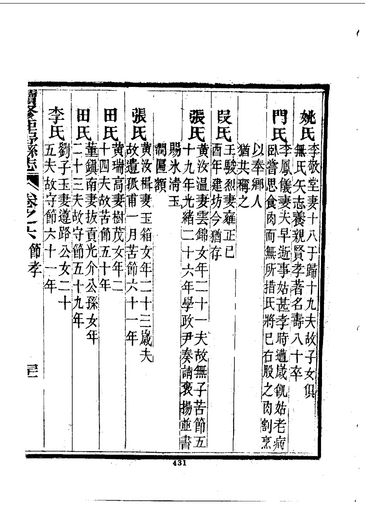 姚氏 李敬堂妻十八于歸十九夫故子女俱
無氏矢志養親賢孝著名壽八十卒
門氏 李鳳儀妻夫早逝事姑甚孝時遭歲飢姑老病
臥嘗思食肉而無所措氏將已右股之肉割烹
以奉鄉人
猶共稱之
段氏 王駿烈妻雍正己
酉年建坊今猶存
張氏 黃汝溫妻雲錦女年二十一夫故無子苦節五
十九年光緒二十六年學政尹奏請褒揚並書
賜氷清玉
潤匾額
張氏 黃汝楫妻玉箱女年二十三歲夫
故遺孤甫一月苦節六十一年
田氏 黃瑞高妻樹茂女年二
十四夫故苦節五十年
田氏 董鎮南妻拔貢光介公孫女年
二十三夫故守節五十九年
李氏 劉子玉妻遵路公女二十
五夫故守節六十一年
縣志 卷之六 節孝
431